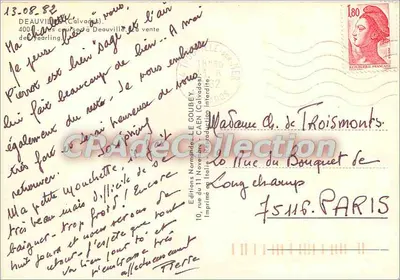 13.08.82
DEAUVILLE (Calvados).
400 à Deauville La vente
de Yearling.
Ma charlotte,
Je pense bien à vous.
Pierrot est bien sage et l'air
lui fait beaucoup de bien. A moi
également du reste. Je vous embrasse
très fort et serai heureuse de vous
retrouver.
Ma petite Mouchette, il fait
très beau mais difficile de se
baigner trop froid! Encore
huit jours et nous serons de
retour. J'espère que tout
va bien pour toi et
t'embrasse très
affectueusement
Pierre
Editions Normandes LE GOUBEY,
10, rue du 11 Novembre, CAEN (Calvados)
Imprimé en Italie Reproduction interdite.
1,80
Madame Ch. de Troismonts
20 Rue du Bouquet de
Longchamp
75116 PARIS
CPAdeCollection